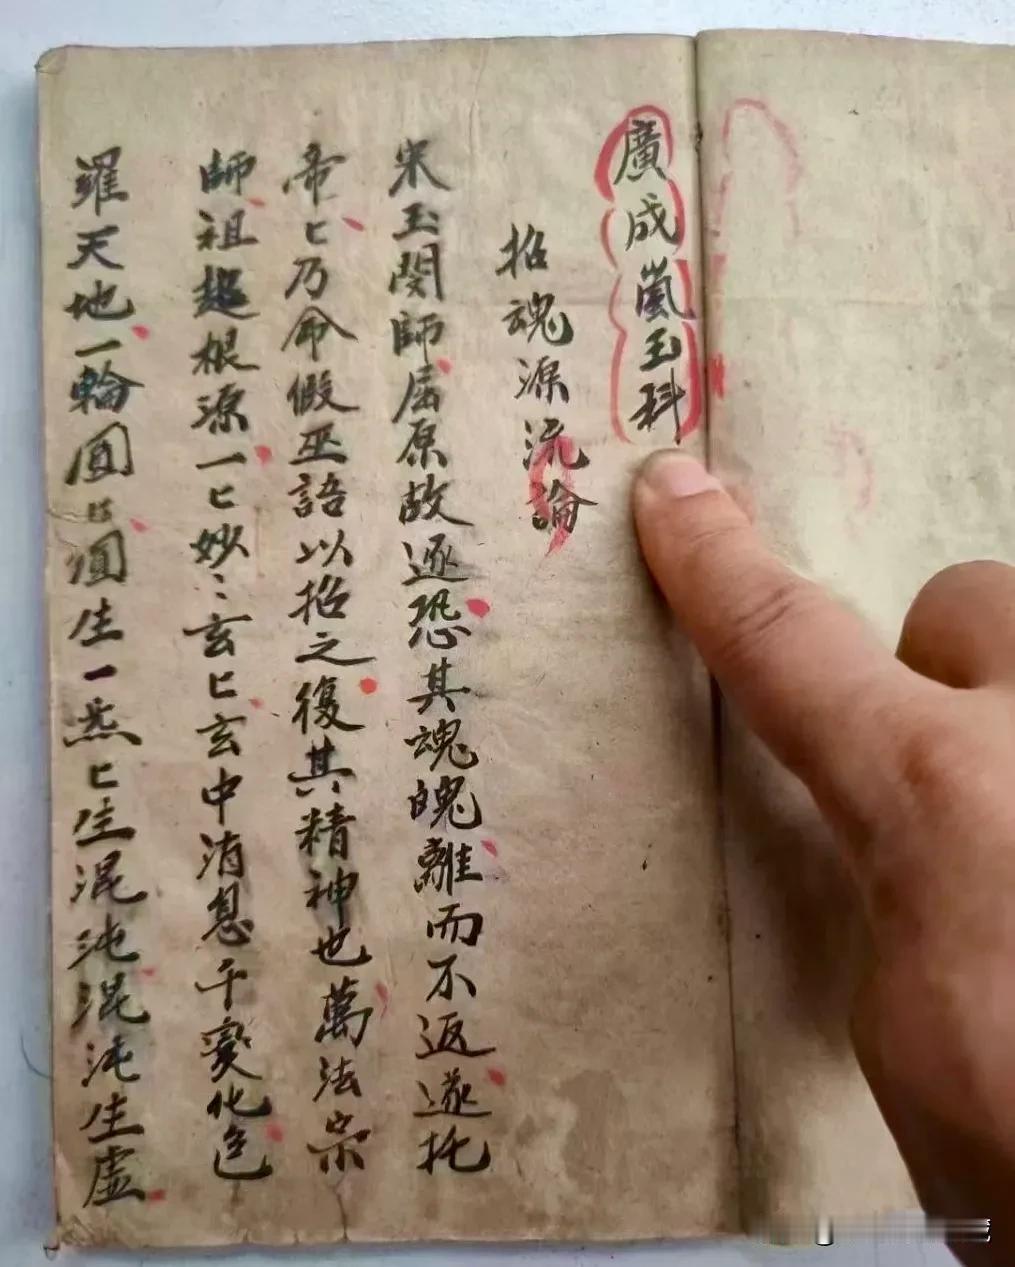 廣成嵐玉科
招魂源流論
宋玉閔師屈原故逐恐其魂魄離而不返遂托
帝匕乃命假巫語以招之復其精神也萬法宗
師祖起根源一匕妙〻玄匕玄中消息千變化包
羅天地一輪圓匕圓生一炁匕生混沌混沌生虛